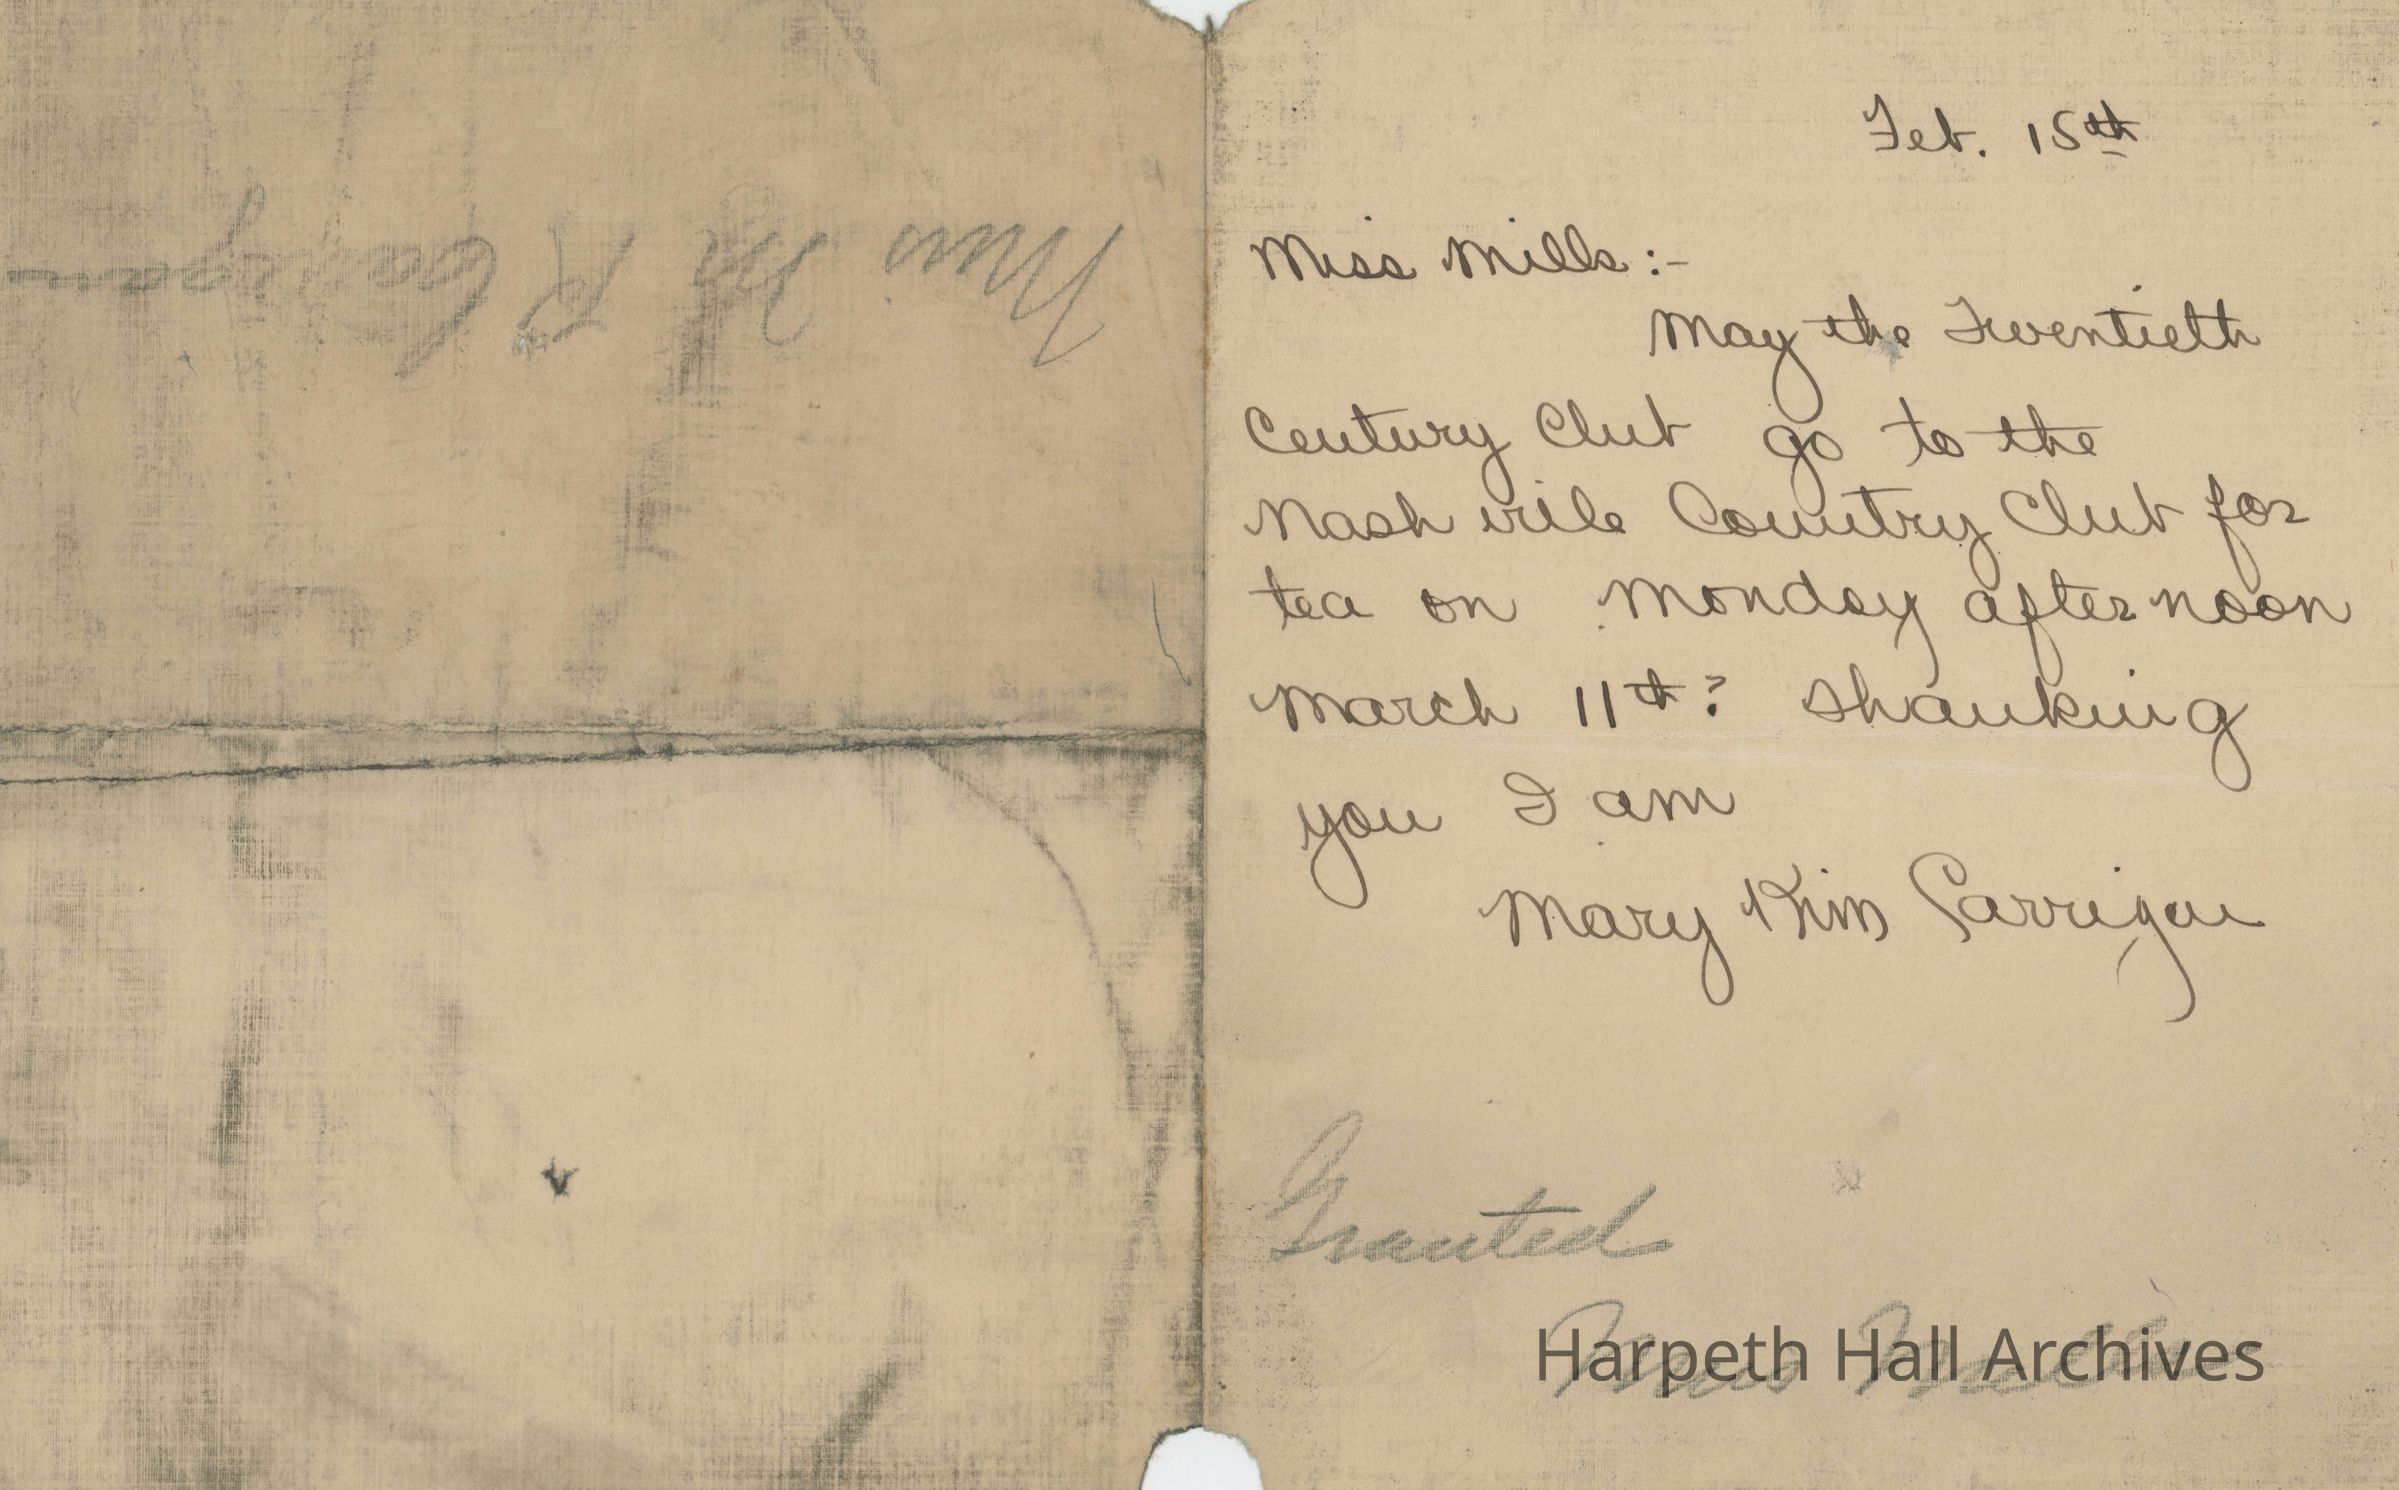 Miss M K Carrigan
Feb. 15th
Miss Mills:-
May the Twentieth
Century Club go to the
Nash vile Country Club for
tea on Monday afternoon
March 11th? Thanking
you I am
Mary Kim Carrigan
Granted
Harpeth Hall Archives